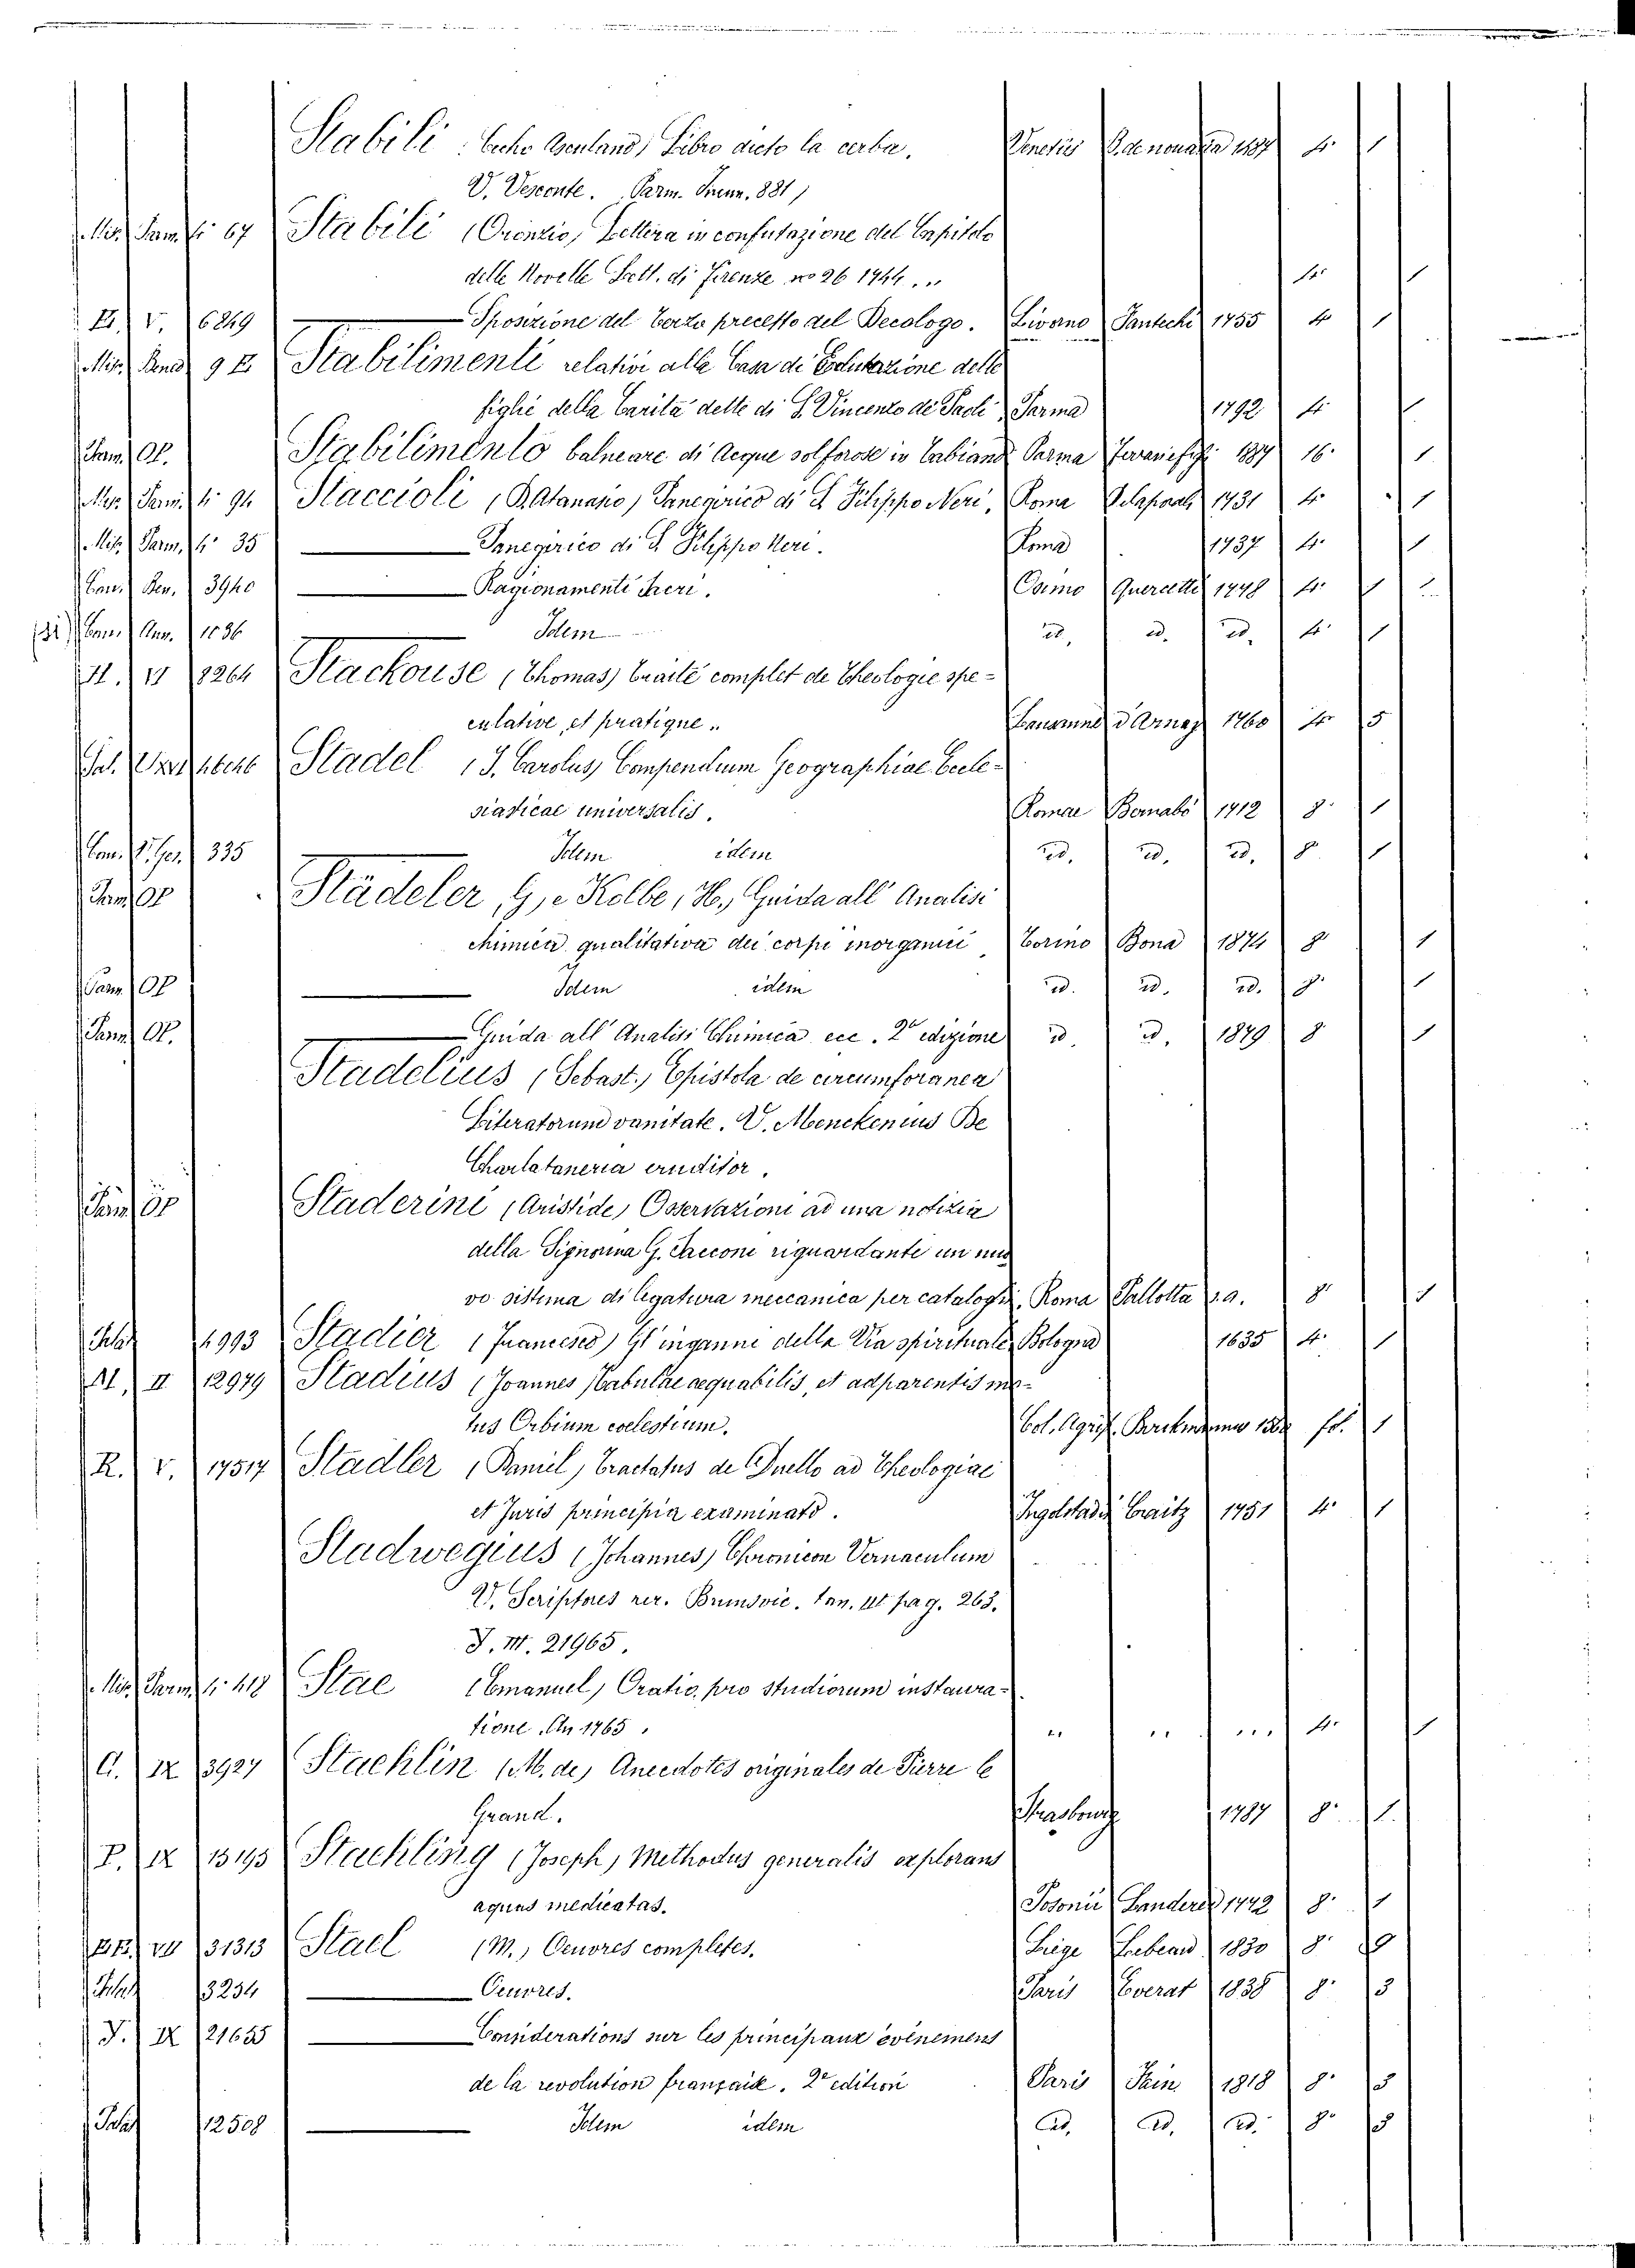 Stabili Libro dicto la cerba. Venetiis 4. 1
V. Vesconte. Parm. 881
Misc. Parm. 4° 67 Stabili (Oronzio) Lettera in confutazione del Capitolo
delle Novelle Lett. di Firenze no 26 1744 4° 1
V. 6849 Sposizione del terzo precetto del Decologo. Livorno Fantechi 1755 4° 1
Stabilimenti relativi alla Casa di Educazione delle
figlie della Carità dette di S. Vincenzo de Paoli Parma 1792 4° 1
Parm. Op. Stabilimento balneare di Acque solforose in Tabiano Parma 1887 16° 1
Misc. Parm. 4° 94 Staccioli (P. Atanasio) Panegirico di S. Filippo Neri, Roma 1731 4° 1
Misc. Parm. 4° 35 Panegirico di S. Filippo Neri. Roma 1737 4° 1
3940 Ragionamenti Sacri. Osimo Quercetti 1748 4° 1
1036 Idem id. id. id. 4° 1
8264 Stackouse (Thomas) Traité complet de Theologie spe-
culative, et pratique. Lausanne d'Arnay 1760 4° 5
Stadel (J. Carolus) Compendium Geographiae Eccle-
siasticae universalis. Romae Bernabò 1712 8° 1
335 Idem idem id. id. id. 8° 1
Parm. Op. Städeler, G, e Kolbe, H., Guida all' Analisi
chimica qualitativa dei corpi inorganici, Torino Bona 1874 8° 1
Parm. Op. Idem idem id. id. id. 8° 1
Parm. Op. Guida all' Analisi Chimica ecc. 2ª edizione id. id. 1879 8° 1
Stadelius (Sebast.) Epistola de circumforanea
Literatorum vanitate. V. Menckenius De
Charlataneria eruditor.
Parm. Op. Staderini (Aristide) Osservazioni ad una notizia
della Signorina G. Sacconi riguardante un nuo
vo sistema di legatura meccanica per cataloghi. Roma Pallotta s.a. 8° 1
Palat. 4993 Stadier (Francesco) Gl'inganni della Via spirituale, Bologna 1635 4° 1
II 12979 Stadius (Joannes) Tabulae aequabilis, et adparentis mo-
tus Orbium coelestium. Col. Agrip. fol. 1
R. V. 17517 Stadler (Daniel) Tractatus de Duello ad Theologiae
et Juris principia examinato. Ingolstadii Craitz 1751 4° 1
Stadwegius (Johannes) Chronicon Vernaculum
V. Scriptores rer. Brunsvic. Tom. III pag. 263.
J. III. 21965.
Misc. Parm. 4° 418 Stae (Emanuel) Oratio, pro studiorum instaura-
tione. An 1765. .. .. ... 4° 1
G. IX 3927 Staehlin (M. de) Anecdotes originales de Pierre le
Grand. Strasbourg 1787 8° 1
P. IX 13193 Staehling (Joseph) Methodus generalis explorans
aquas medicatas. Posonii Landerer 1742 8° 1
VII 31313 Stael (M.) Oeuvres completes. Liège Lebeau 1830 8° 19
Palat. 3254 Oeuvres. Paris Everat 1838 8° 3
J. IX 21655 Considerations sur les principaux évènemens
de la revolution française. 2e edition Paris 1818 8° 3
Palat. 12508 Idem idem id. id. id. 8° 3